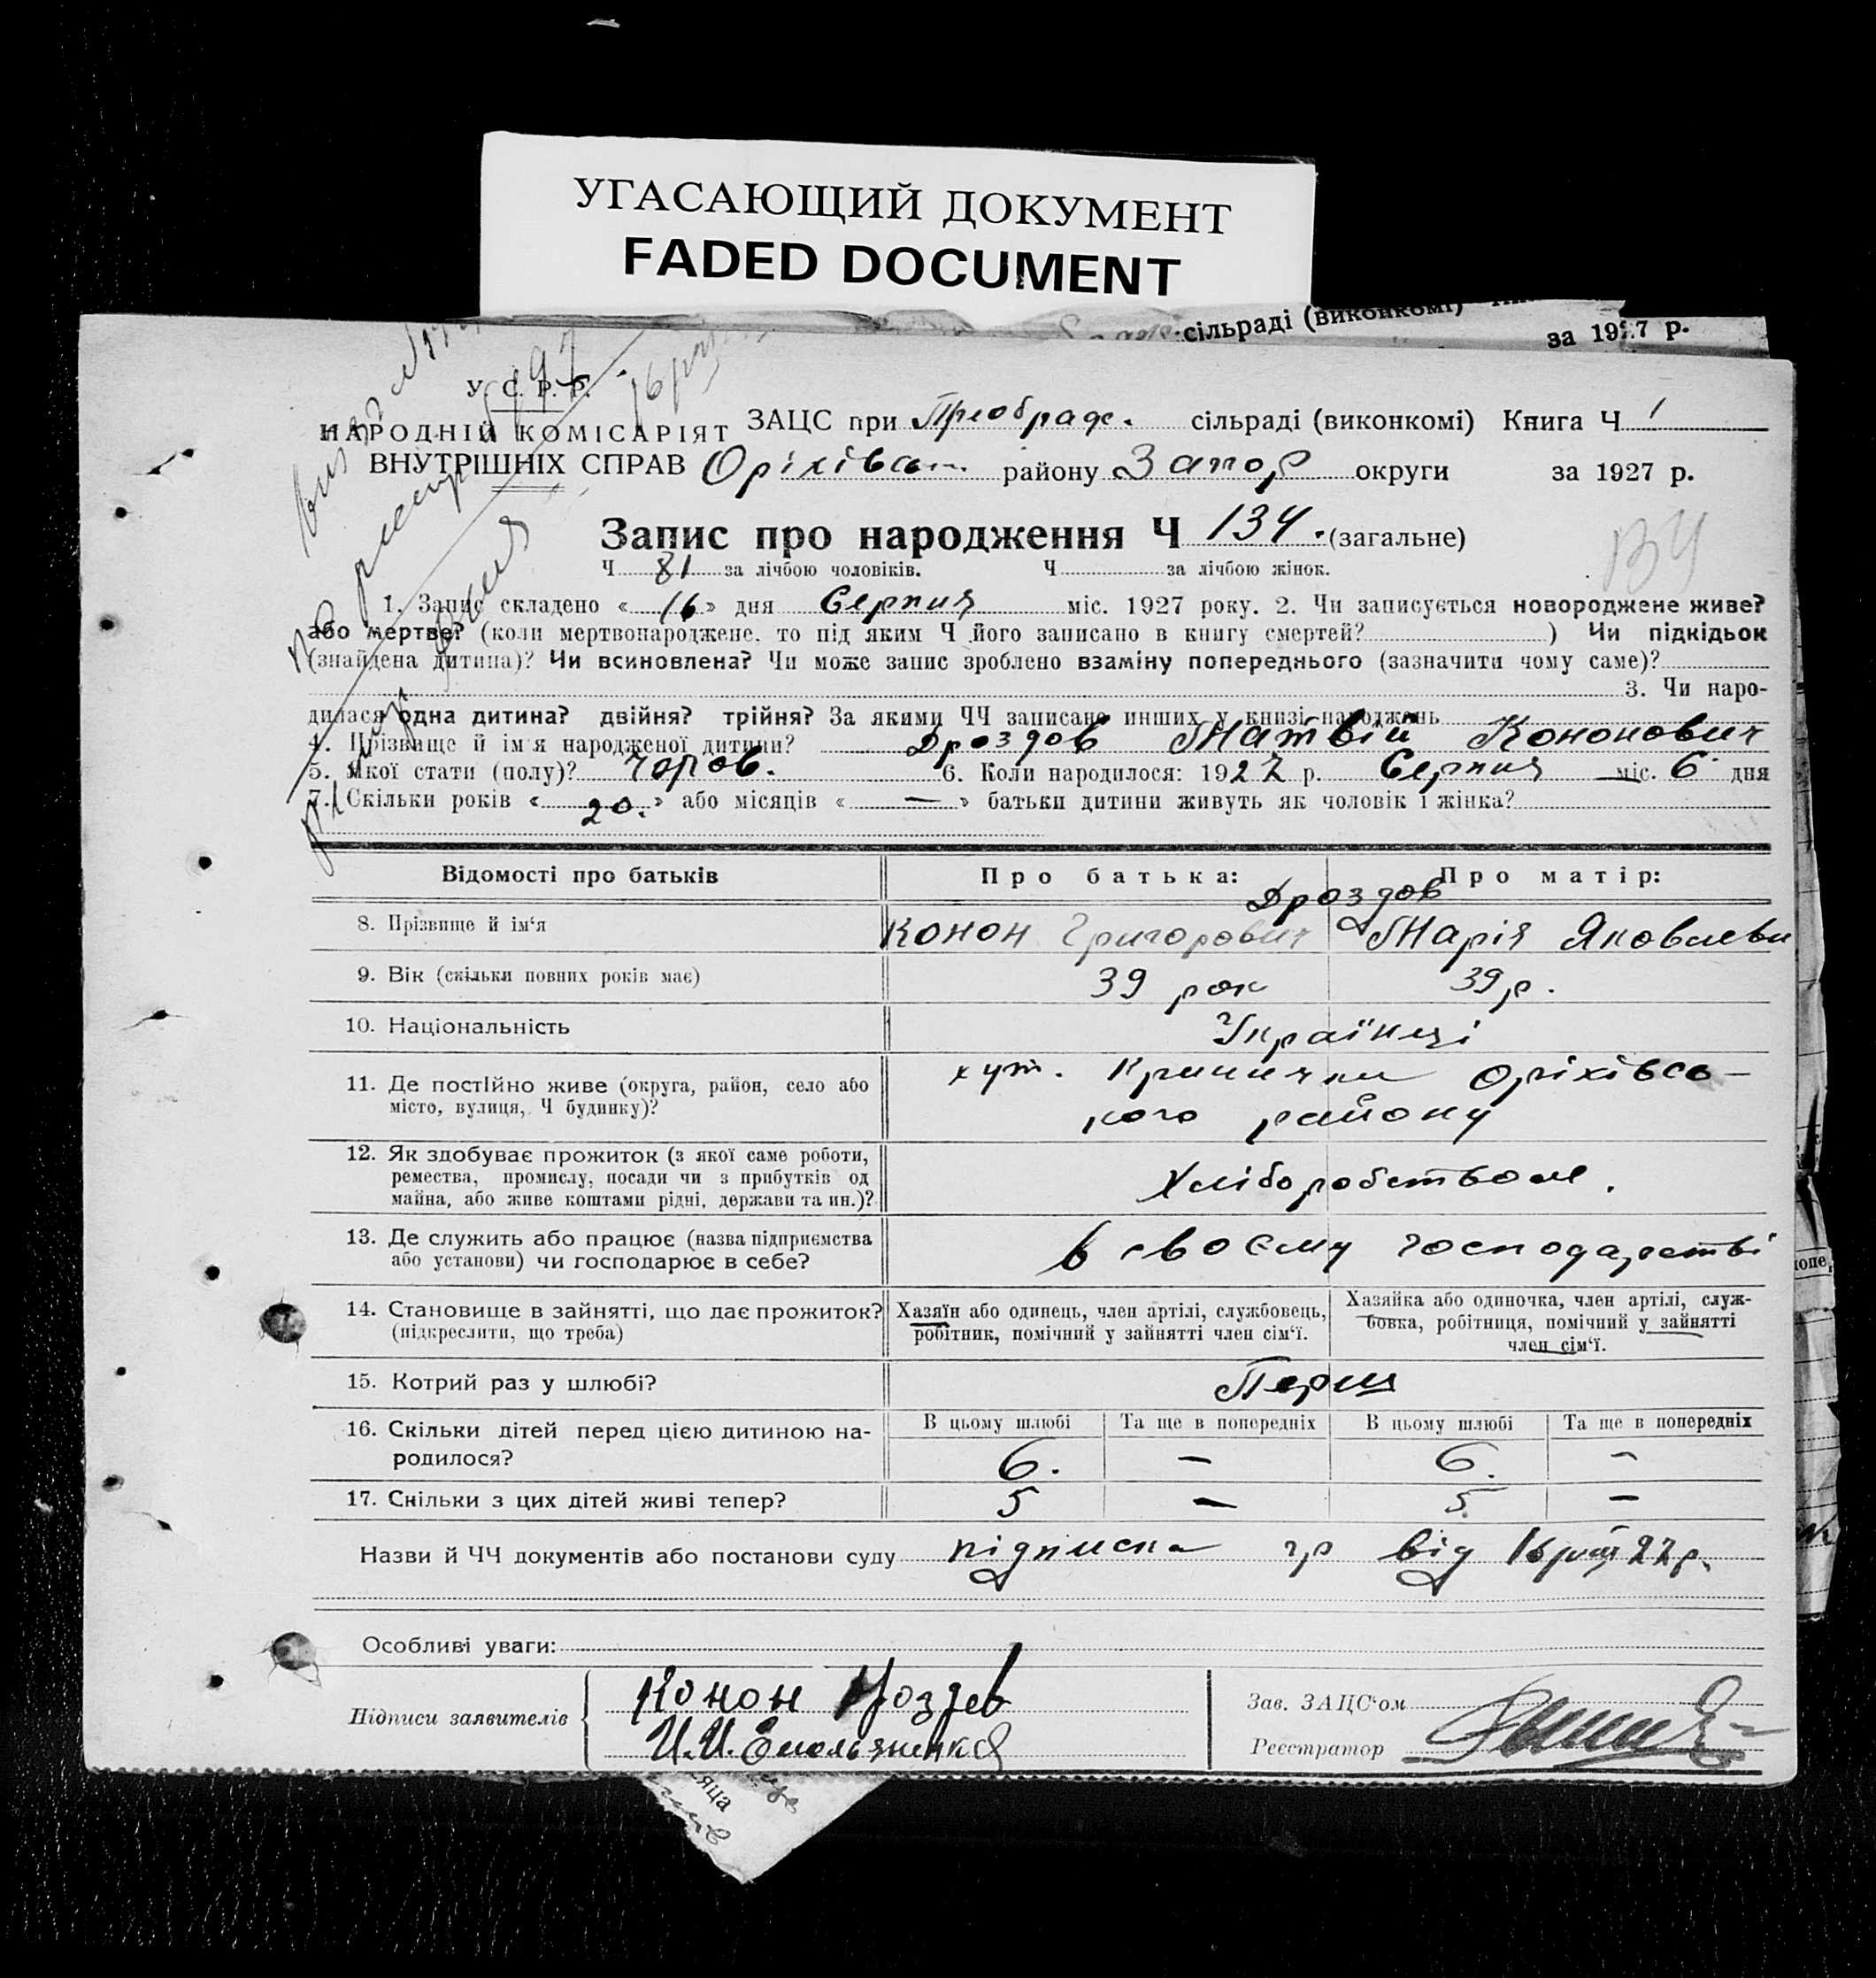 УГАСАЮЩИЙ ДОКУМЕНТ
FADED DOCUMENT
сільраді (виконкомі)
за 1927 р.
У. С. Р. Р.
НАРОДНІЙ КОМІСАРІЯТ
ВНУТРІШНІХ СПРАВ
ЗАЦС при Преображ. сільраді (виконкомі) Книга Ч 1
Оріхівськ. району Запор округи за 1927 р.
Запис про народження Ч 134. (загальне)
134
Ч 81 за лічбою чоловіків. Ч за лічбою жінок.
1. Запис складено « 16 » дня Серпня міс. 1927 року. 2. Чи записується новороджене живе?
або мертве? (коли мертвонароджене, то під яким Ч його записано в книгу смертей? ) Чи підкідьок
(знайдена дитина)? Чи всиновлена? Чи може запис зроблено взаміну попереднього (зазначити чому саме)?
3. Чи наро-
дилася одна дитина? двійня? трійня? За якими ЧЧ записано инших у книзі народжень
4. Прізвище й ім'я народженої дитини? Дроздов Матвій Кононович
5. Якої стати (полу)? Чолов. 6. Коли народилося: 1927 р. Серпня міс. 6 дня
7. Скільки років « 20. » або місяців « — » батьки дитини живуть як чоловік і жінка?
Відомості про батьків Про батька: Про матір:
Дроздов
8. Прізвище й ім'я Конон Григорович Марія Яковлевн
9. Вік (скільки повних років має) 39 рок 39 р.
10. Національність Українці
11. Де постійно живе (округа, район, село або хут. Кринички Оріхівсь-
місто, вулиця, Ч будинку)? кого району
12. Як здобуває прожиток (з якої саме роботи,
ремества, промислу, посади чи з прибутків од Хліборобством.
майна, або живе коштами рідні, держави та ин.)?
13. Де служить або працює (назва підприємства в своєму господарстві
або установи) чи господарює в себе?
14. Становище в зайнятті, що дає прожиток? Хазяїн або одинець, член артілі, службовець, Хазяйка або одиночка, член артілі, служ-
(підкреслити, що треба) робітник, помічний у зайнятті член сім'ї. бовка, робітниця, помічний у зайнятті
член сім'ї.
15. Котрий раз у шлюбі? Перш
16. Скільки дітей перед цією дитиною на- В цьому шлюбі Та ще в попередніх В цьому шлюбі Та ще в попередніх
родилося? 6. – 6. –
17. Скільки з цих дітей живі тепер? 5 – 5 –
Назви й ЧЧ документів або постанови суду підписка гр від 16/VIII 27 р.
Особливі уваги:
Підписи заявителів Конон Дроздов
И.И. Емольяненко
Зав. ЗАЦС'ом
Реєстратор